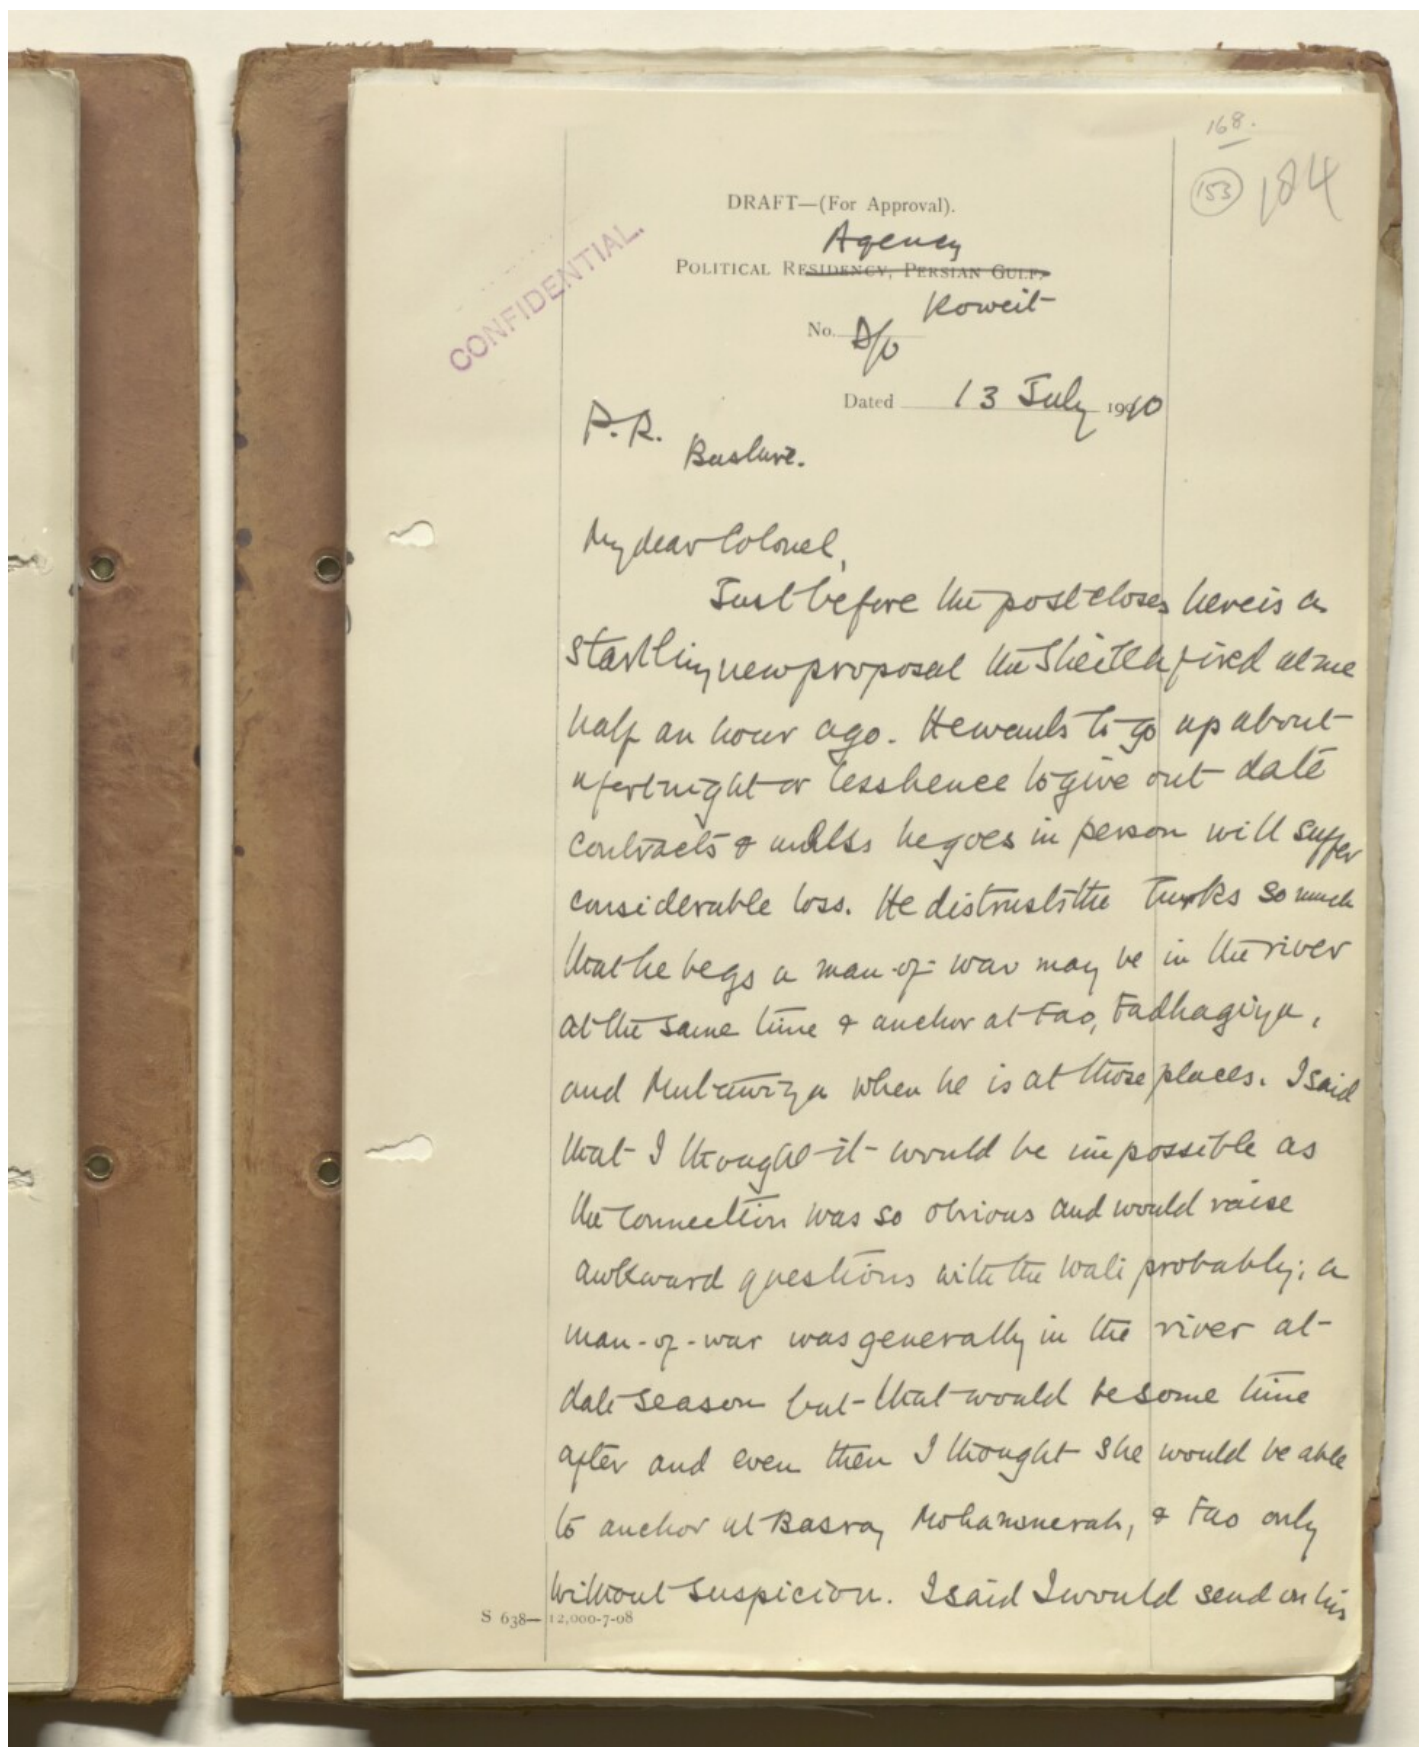 168.
153 184
DRAFT—(For Approval).
Agency
POLITICAL RESIDENCY, PERSIAN GULF,
CONFIDENTIAL.
Koweit
No. D/O
Dated 13 July 1910
P.R.
Bushire.
My dear Colonel,
Just before the post closes here is a
startling new proposal the Sheikh fired at me
half an hour ago. He wants to go up about
a fortnight or less hence to give out date
contracts & unless he goes in person will suffer
considerable loss. He distrusts the Turks so much
that he begs a man-of-war may be in the river
at the same time & anchor at Fao, Fadhagiya,
and when he is at those places. I said
that I thought it would be impossible as
the connection was so obvious and would raise
awkward questions with the Wali probably; a
man-of-war was generally in the river at
date season but that would be some time
after and even then I thought she would be able
to anchor at Basra, Mohammerah, & Fao only
without suspicion. I said I would send on his
S 638—12,000-7-08